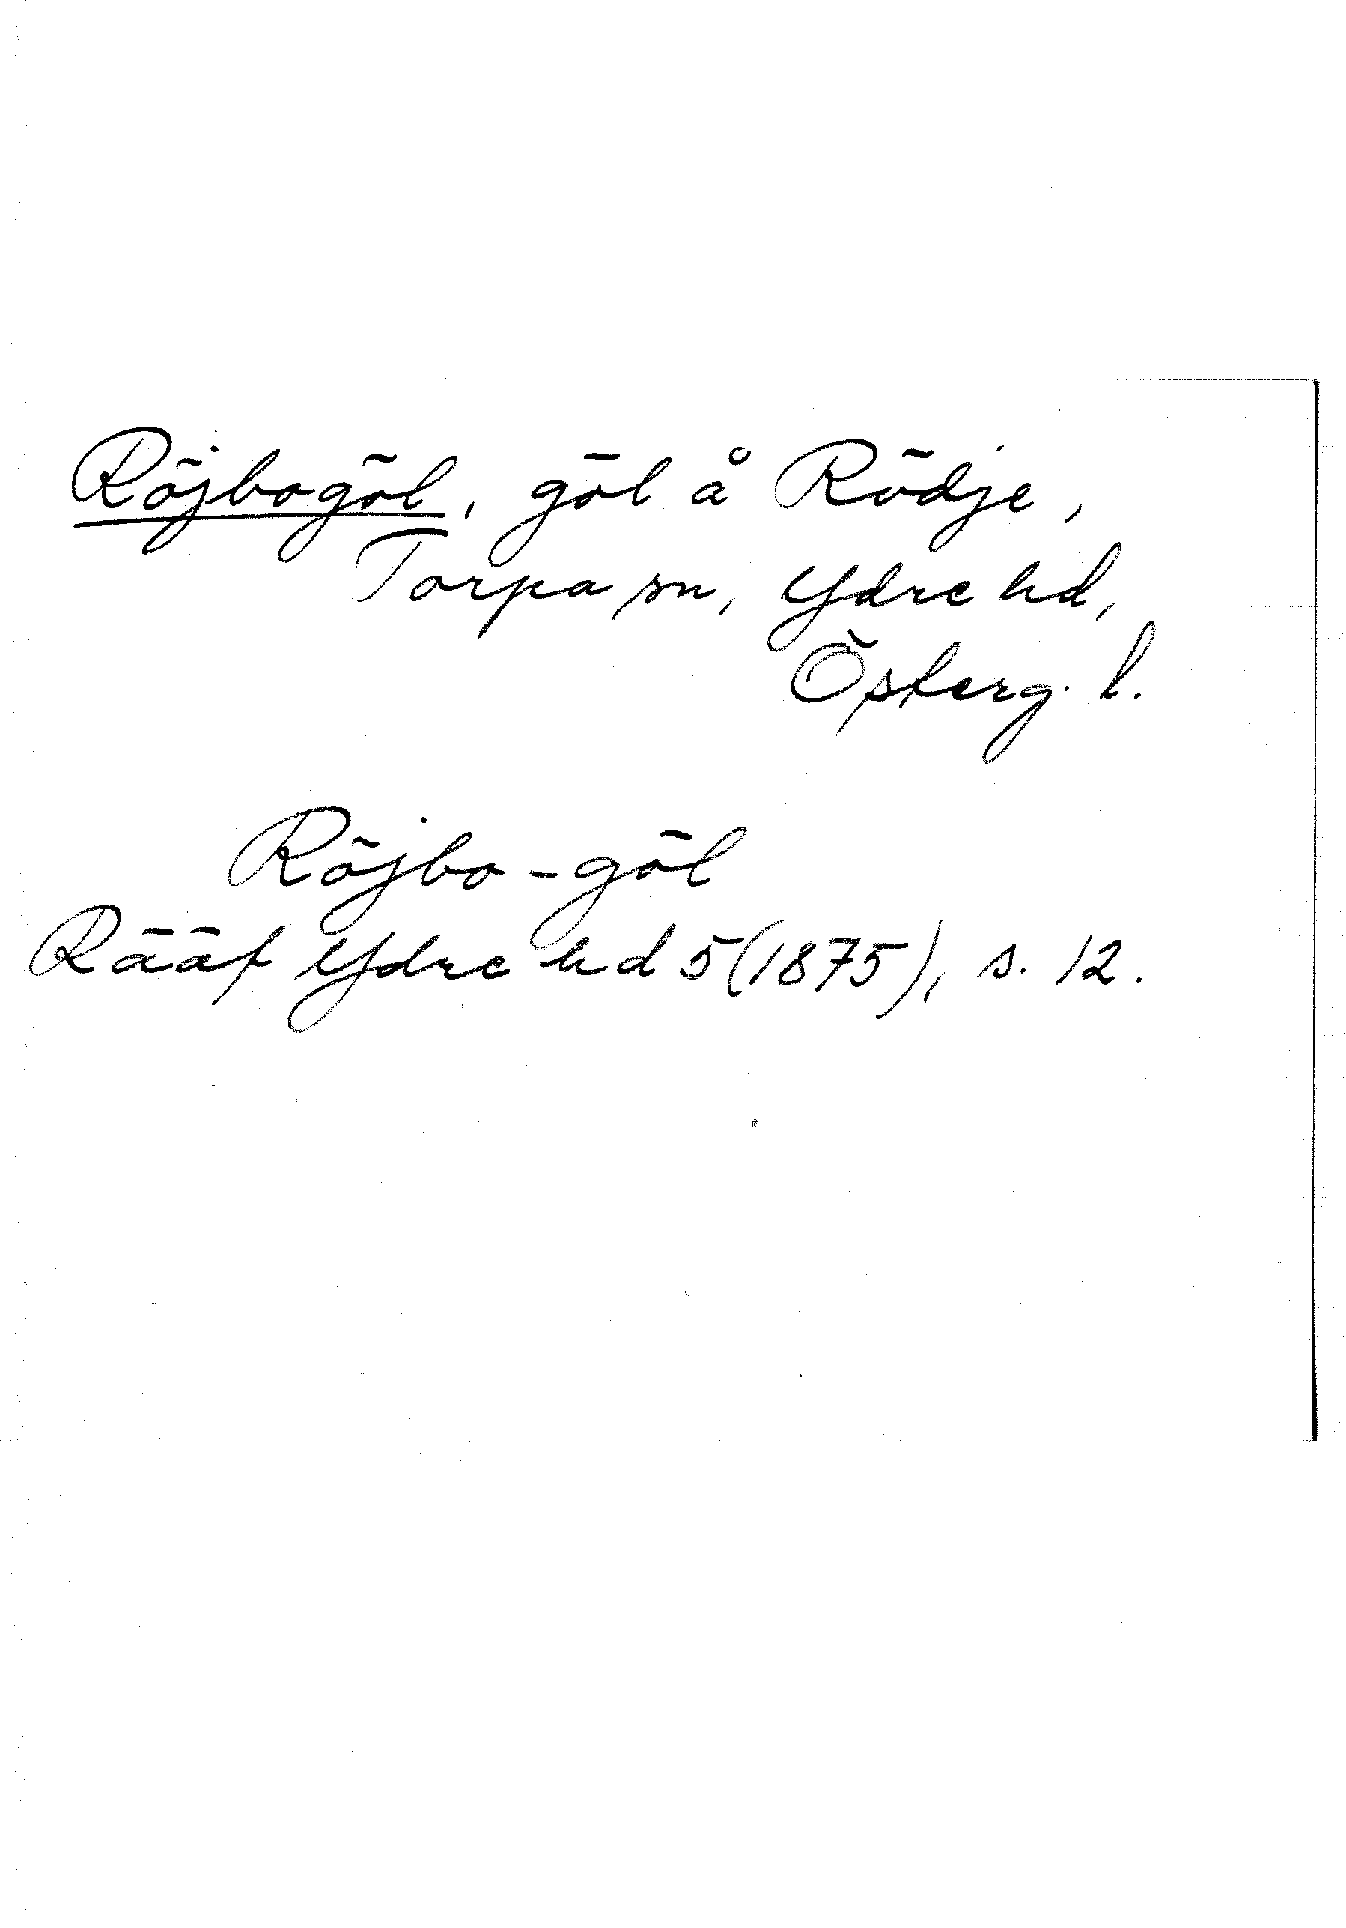 Röjbogöl, göl å Rödje,
Torpa sn, Ydre hd,
Österg. l.
Röjbo-göl
Rääf Ydre hd 5(1875), s. 12.